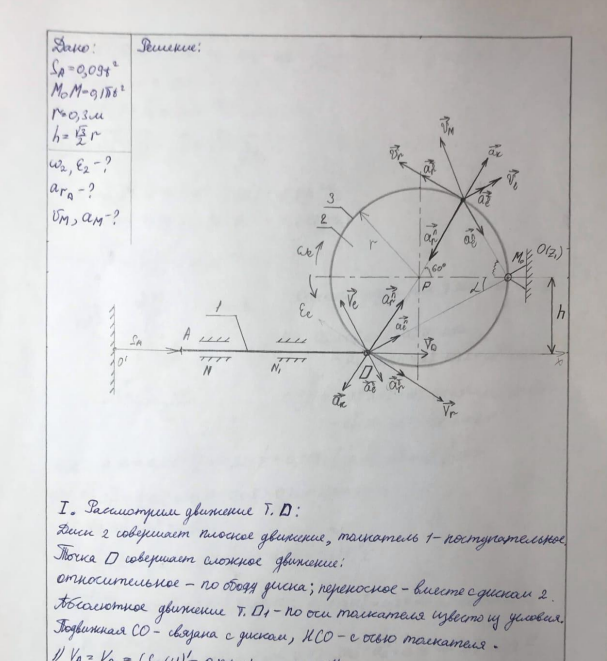 Дано:
Решение:
S_A = 0,09t²
M₀M = 0,1πt²
r = 0,3 м
h = √3/2 r
ω₂, ε₂ - ?
a_rA - ?
v_M, a_M - ?
v̄_M
v̄_r
ā_r^τ
ā_k
v̄_e
3
2
r
ω_e
60°
P
M₀
O(z₁)
α
h
ε_e
v̄_e
ā_r^n
1
S_A
A
O'
N
N₁
D
v̄_D
x
ā_k
ā_r^τ
v̄_r
I. Рассмотрим движение т. D:
Диск 2 совершает плоское движение, толкатель 1 - поступательное.
Точка D совершает сложное движение:
относительное - по ободу диска; переносное - вместе с диском 2.
Абсолютное движение т. D₁ - по оси толкателя известно из условия.
Подвижная СО - связана с диском, НСО - с осью толкателя.